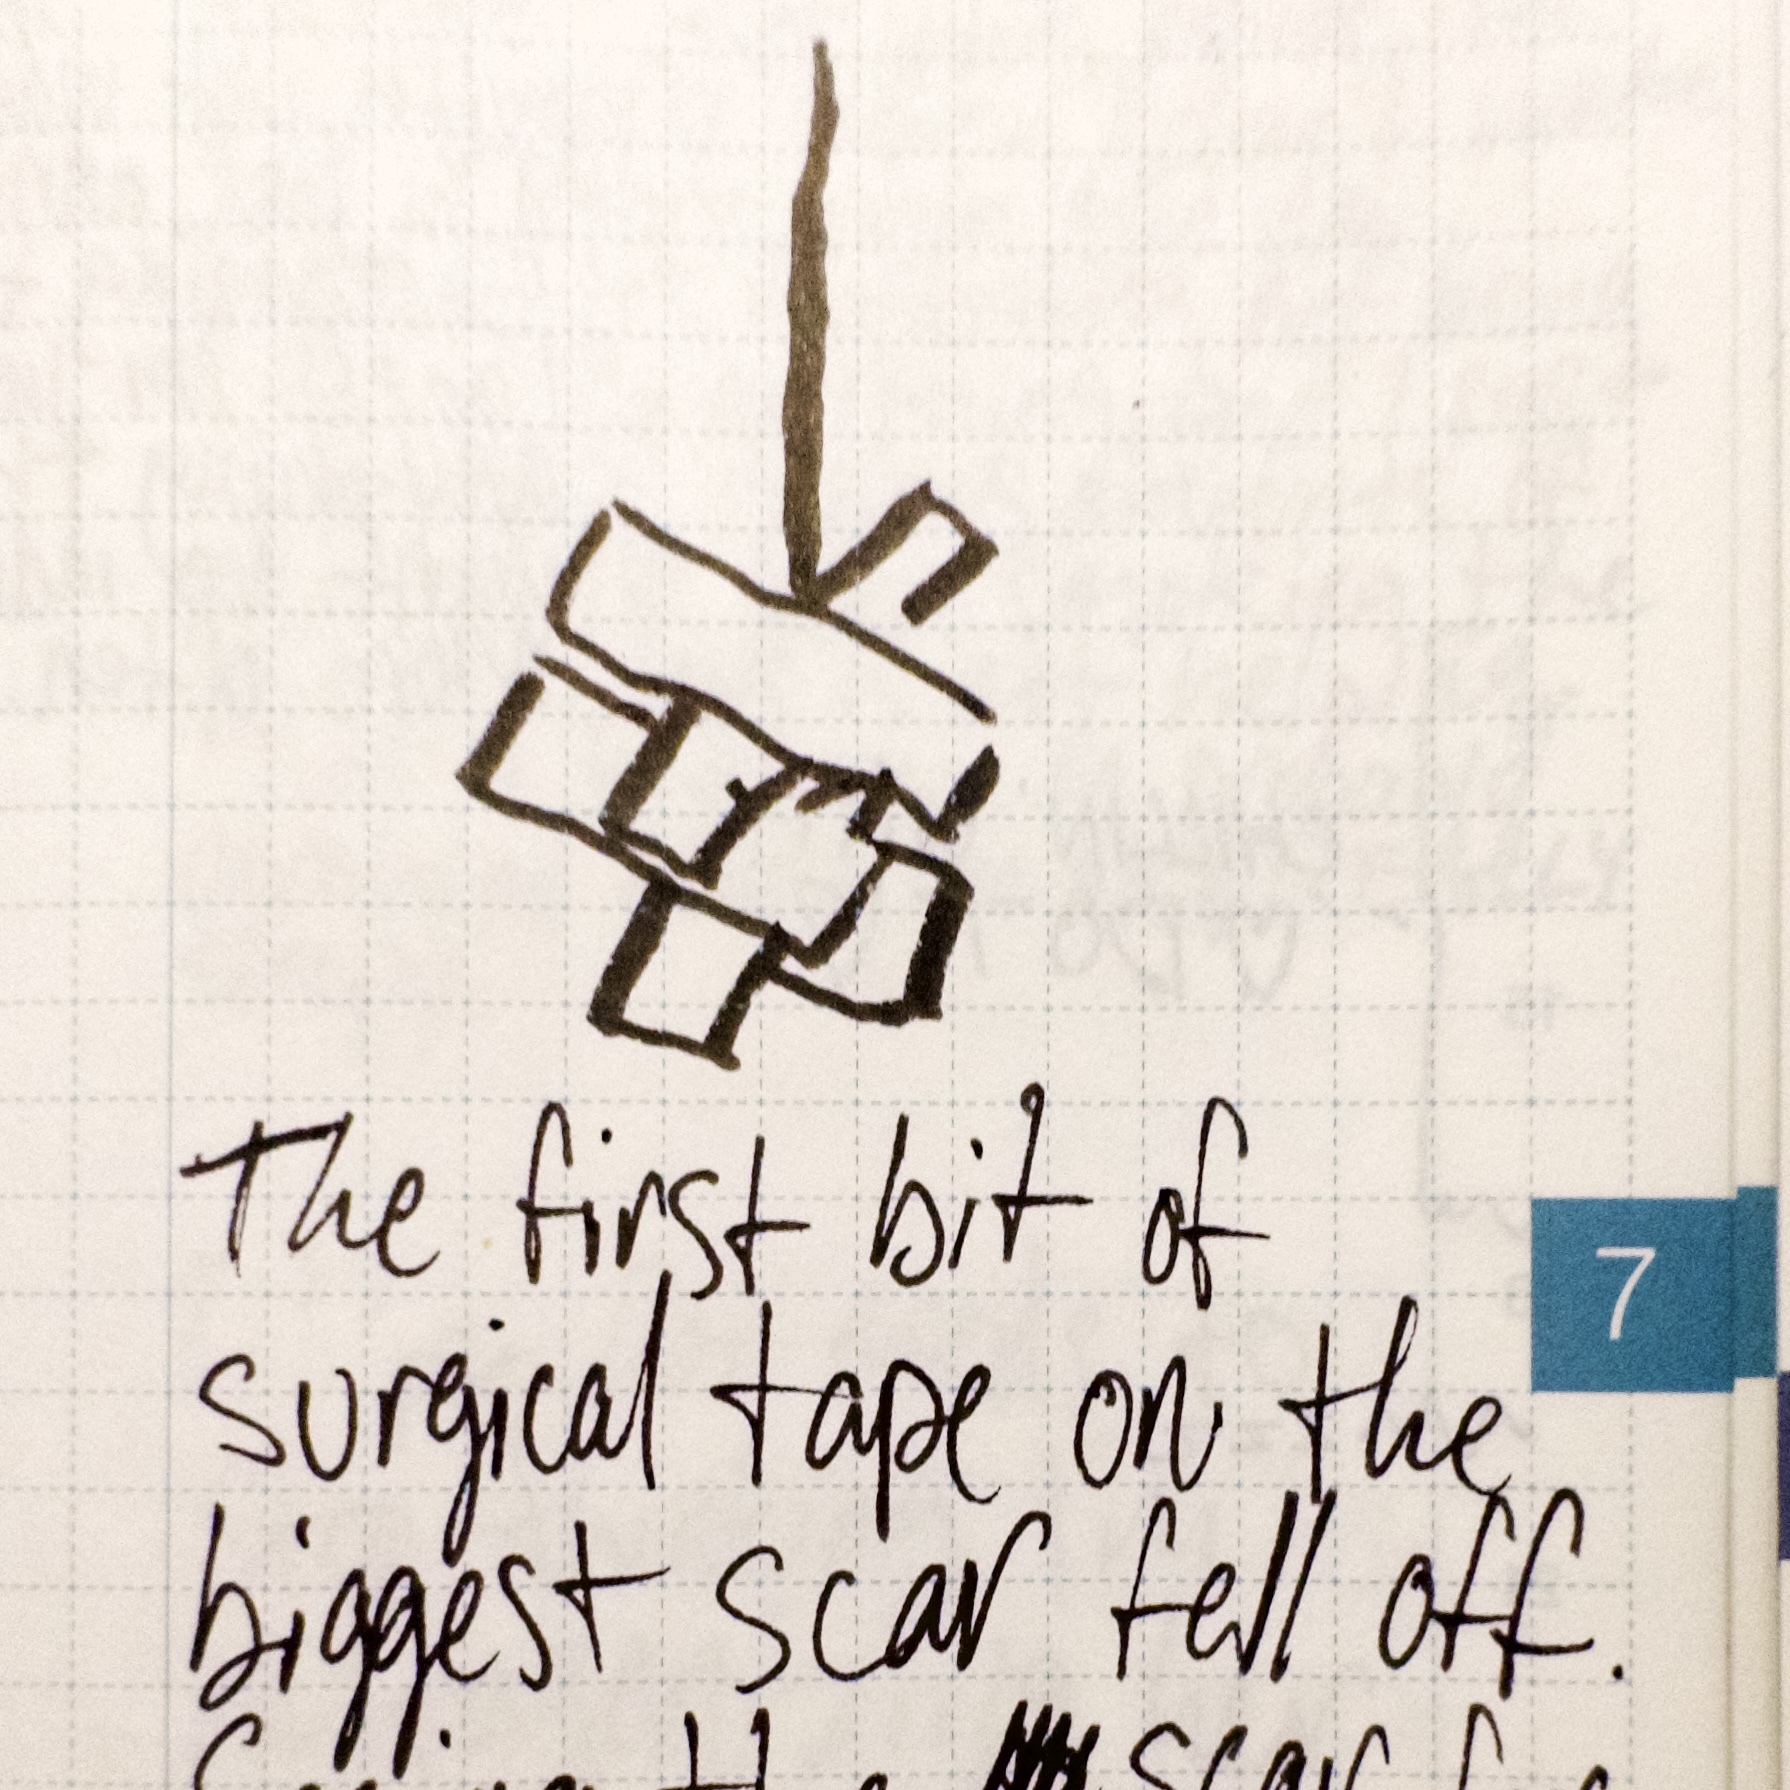 The first bit of
surgical tape on the
7
biggest scar fell off.
the scar